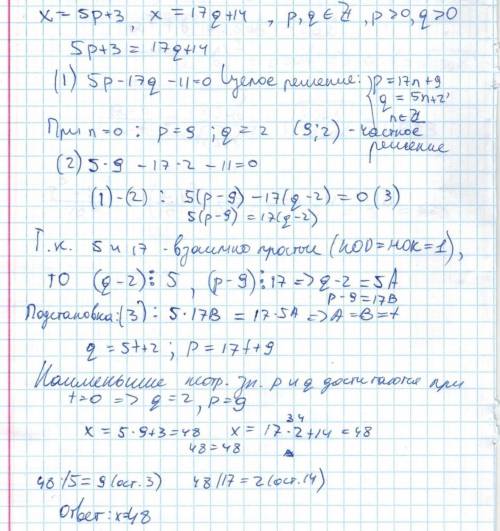 x = 5p+3, x = 17q+14, p,q ∈ Z, p>0, q>0
5p+3 = 17q+14
(1) 5p-17q-11=0 Целое решение: { p=17n+9
q = 5n+2,
n∈Z
При n=0 : p=9 ; q=2 (9;2) - частное
решение
(2) 5·9 - 17·2 - 11=0
(1)-(2) : 5(p-9) -17(q-2) = 0 (3)
5(p-9) = 17(q-2)
Т.к. 5 и 17 - взаимно простые (НОД=НОК=1),
то (q-2)⋮5, (p-9)⋮17 => q-2=5A
p-9=17B
Подстановка:(3): 5·17B = 17·5A => A=B=t
q = 5t+2 ; p=17t+9
Наименьшие зн. p и q достигаются при
t=0 => q=2, p=9
x = 5·9+3=48 x = 17·2+14=48
34
48=48
48/5=9 (ост.3) 48/17=2 (ост.14)
Ответ: x=48